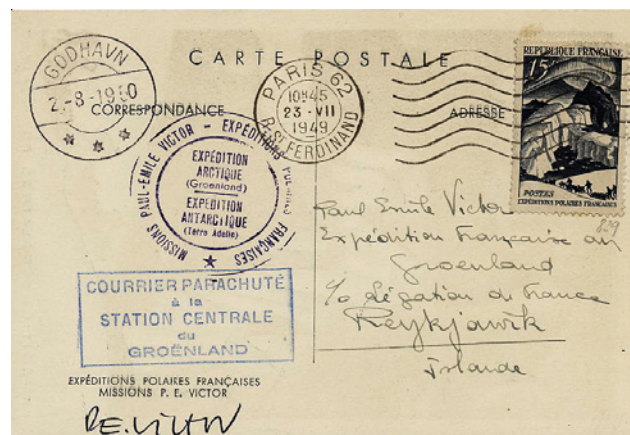 GODHAVN
2-8-1950
CARTE POSTALE
CORRESPONDANCE
ADRESSE
PARIS 62
10H45
23-VII
1949
R. St FERDINAND
REPUBLIQUE FRANÇAISE
15F
POSTES
EXPÉDITIONS POLAIRES FRANÇAISES
829
MISSIONS PAUL-EMILE VICTOR - EXPÉDITIONS POLAIRES FRANÇAISES
EXPÉDITION
ARCTIQUE
(Groenland)
EXPÉDITION
ANTARCTIQUE
(Terre Adélie)
COURRIER PARACHUTÉ
à la
STATION CENTRALE
du
GROËNLAND
EXPÉDITIONS POLAIRES FRANÇAISES
MISSIONS P. E. VICTOR
P.E. Victor
Paul Emile Victor
Expédition Française au
Groenland
c/o Légation de France
Reykjawik
Islande